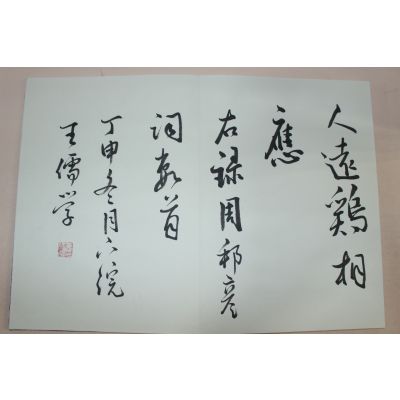 人遠鷄相
應
右録周邦彦
詞數首
丁申冬月六浣
王儒學